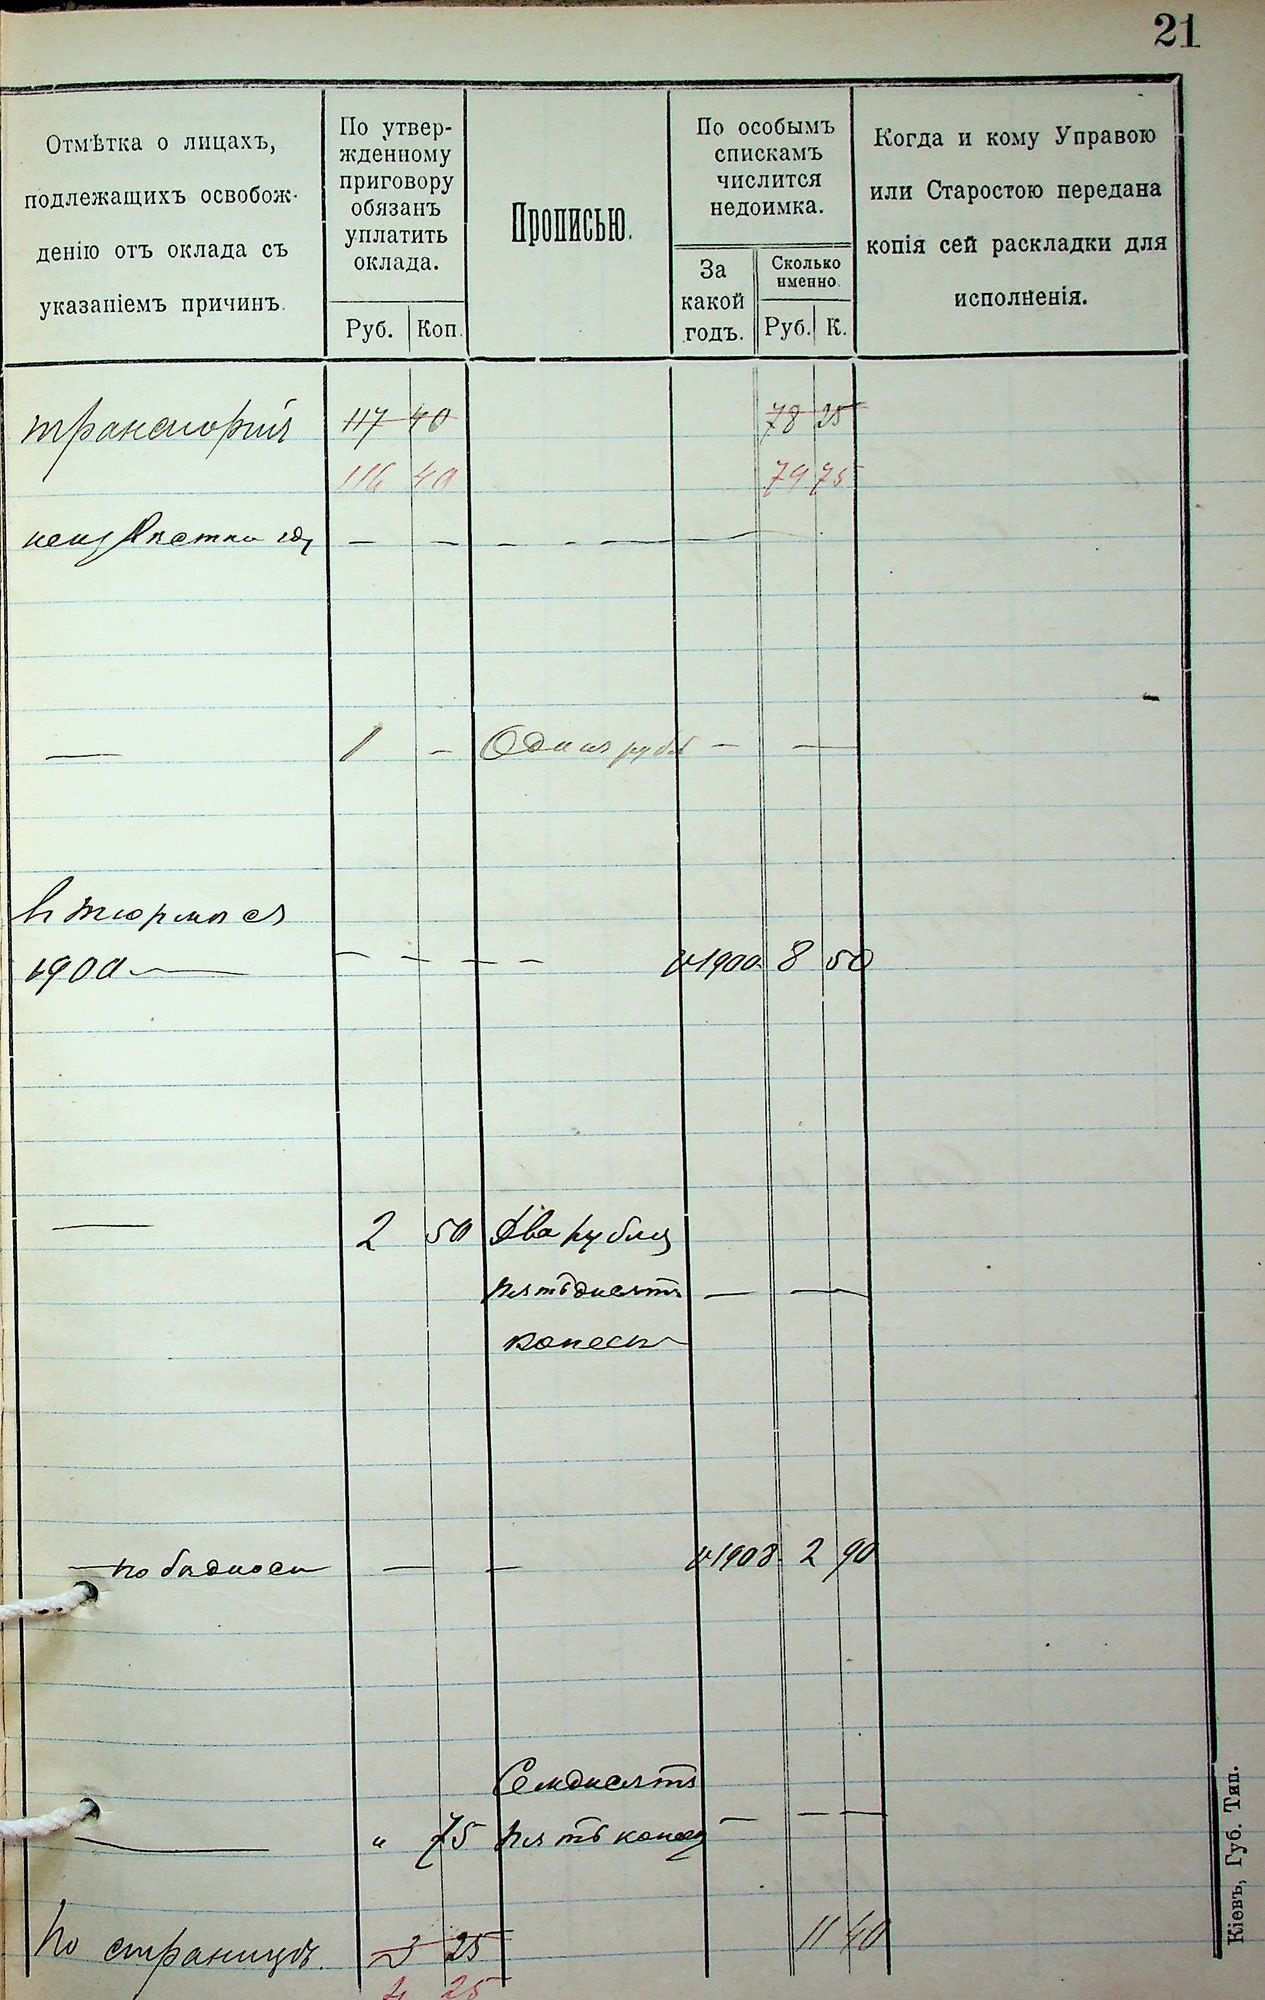 21
Отмѣтка о лицахъ,
подлежащихъ освобож-
денію отъ оклада съ
указаніемъ причинъ.
По утвер-
жденному
приговору
обязанъ
уплатить
оклада.
Руб. Коп.
Прописью.
По особымъ
спискамъ
числится
недоимка.
За
какой
годъ.
Сколько
именно.
Руб. К.
Когда и кому Управою
или Старостою передана
копія сей раскладки для
исполненія.
транспортъ 117 40 78 25
116 40 79 75
— — — — —
— 1 — Одинъ рубл — —
въ тюрьмѣ съ
1900 — — — — — 1900 8 50
— 2 50 Два рубля
пятьдесятъ — —
копеек
— по бѣдности — — 1908 2 90
Семдесятъ
— " 75 пять копеек — — —
По страницѣ. 3 25 11 40
4 25
Кіевъ, Губ. Тип.